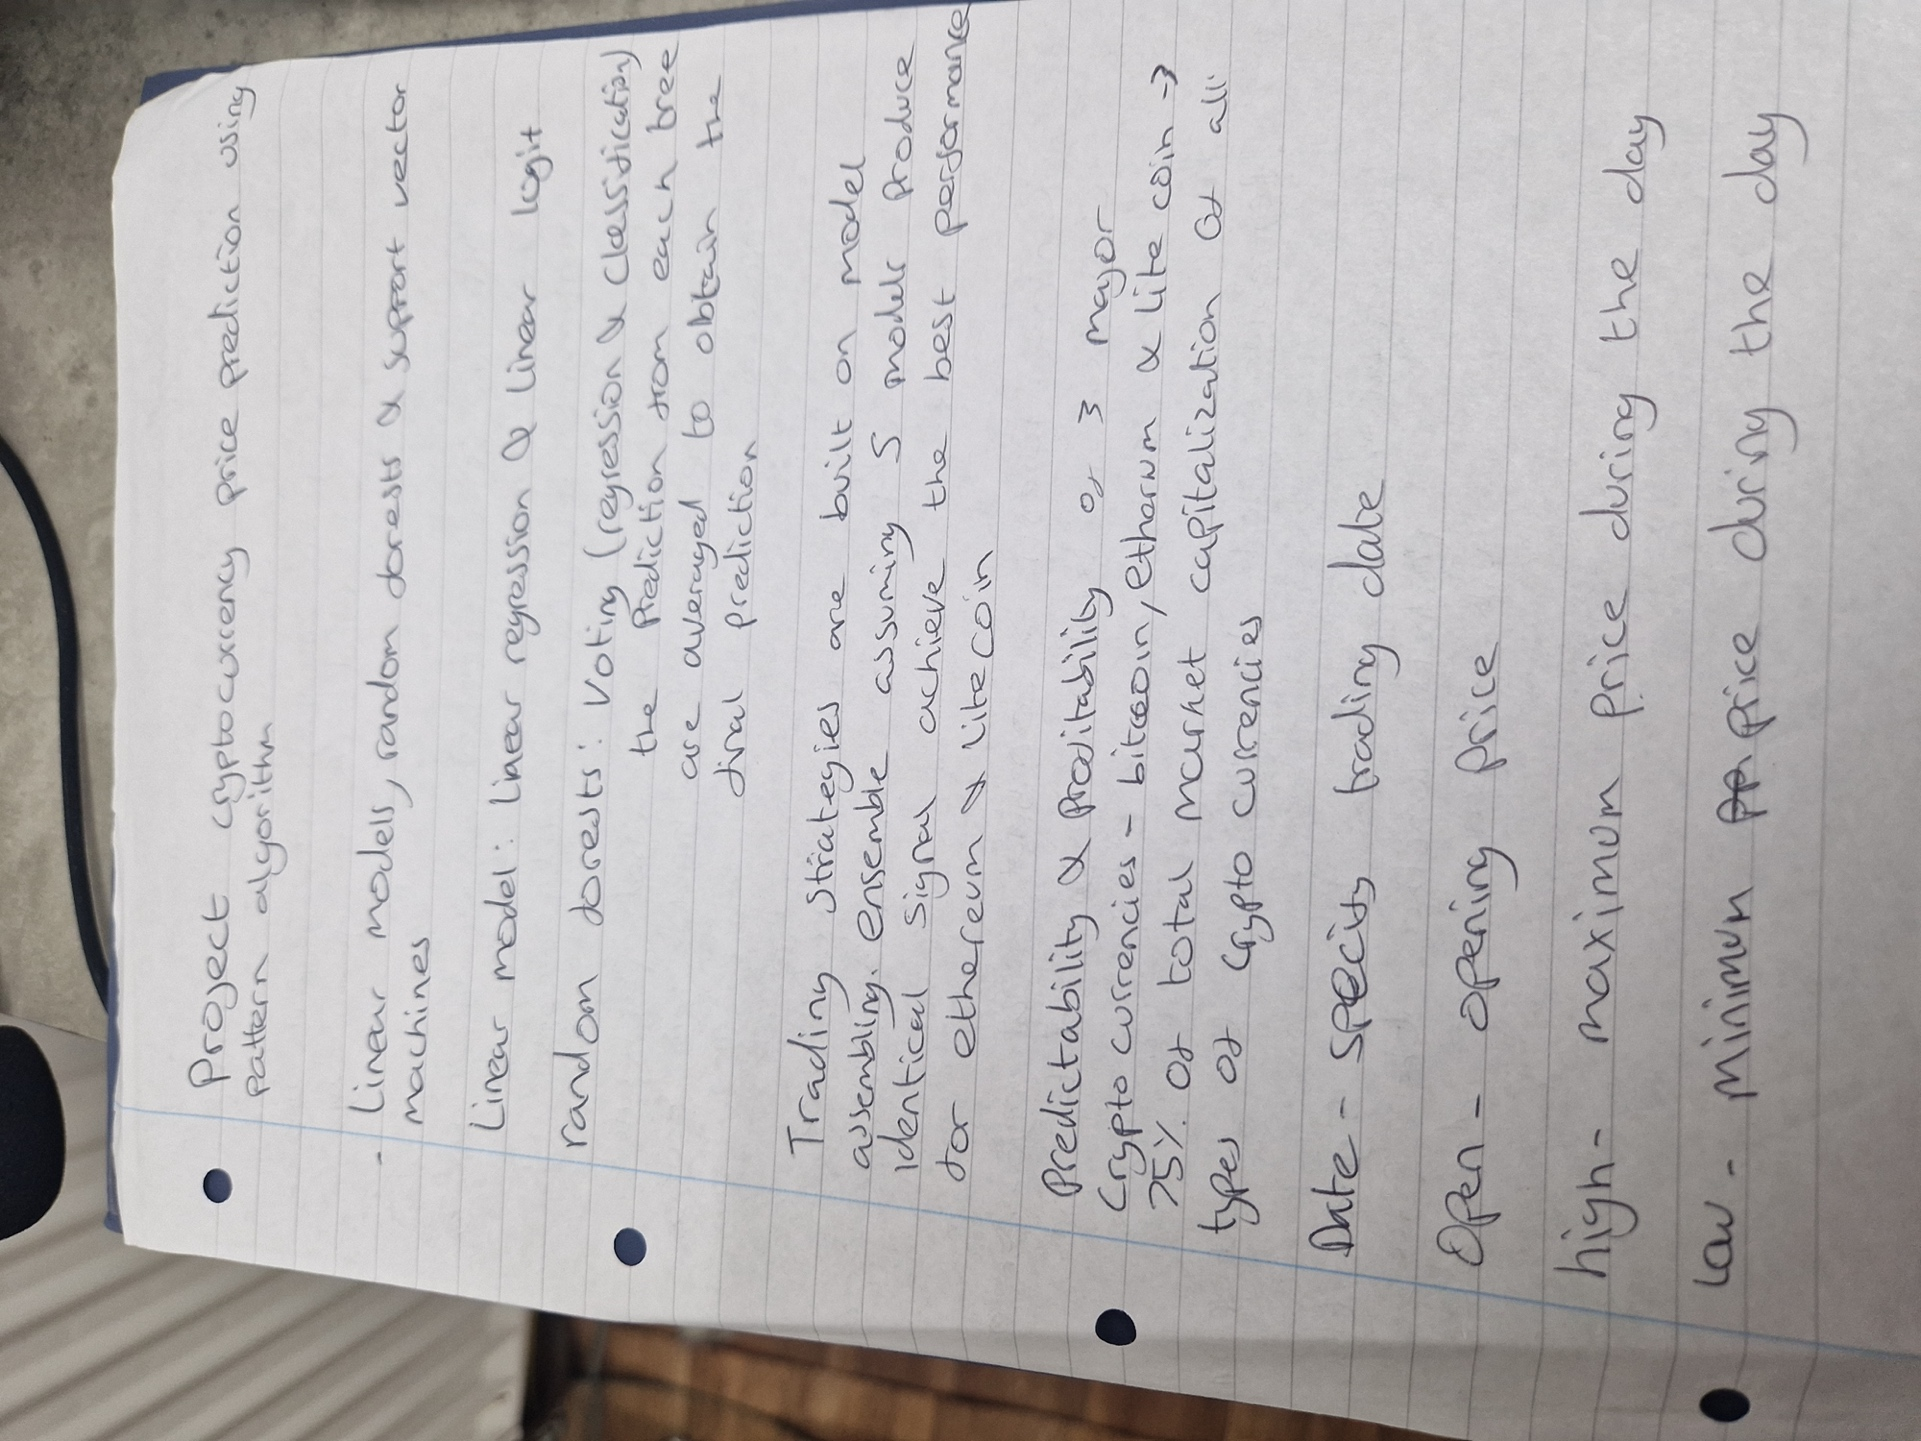 Project cryptocurrency price prediction using
pattern algorithm
- Linear models, random forests & support vector
machines
Linear model: linear regression & linear logit
random forests: voting (regression & classification)
the prediction from each tree
are averaged to obtain the
final prediction
Trading strategies are built on model
assembling. ensemble assuming 5 models produce
identical signal achieve the best performance
for ethereum & litecoin
Predictability & profitability of 3 major
cryptocurrencies - bitcoin, etharum & lite coin →
75% of total market capitalization of all
types of crypto currencies
Date - specify trading date
Open - opening price
high - maximum price during the day
low - minimum price during the day